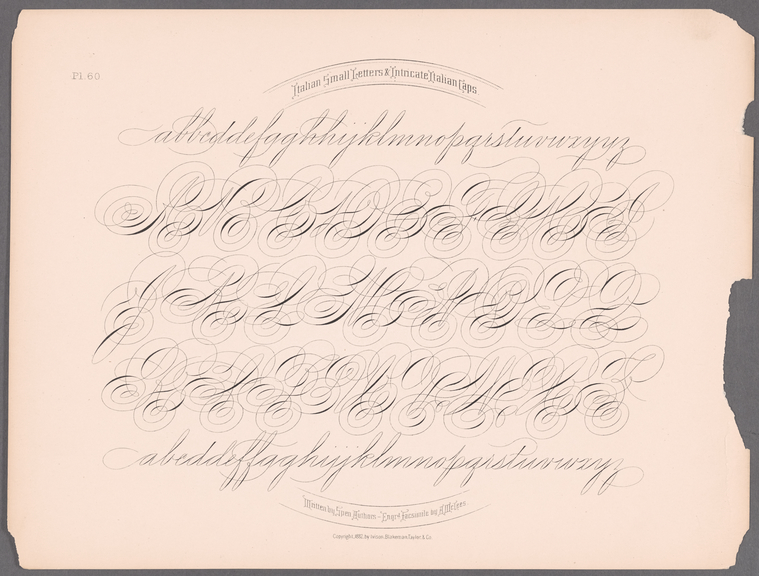 Pl. 60
Italian Small Letters & Intricate Italian Caps
abbcddefgghhijklmnopqrstuvwxyyz
A B C D E F G H I
J K L M N O P Q
R S T U V W X Y Z
abcddeffgghijjklmnopqrstuvwxyz
Written by Engrd Facsimile by A. McLees
Copyright, by Ivison, Blakeman, Taylor & Co.